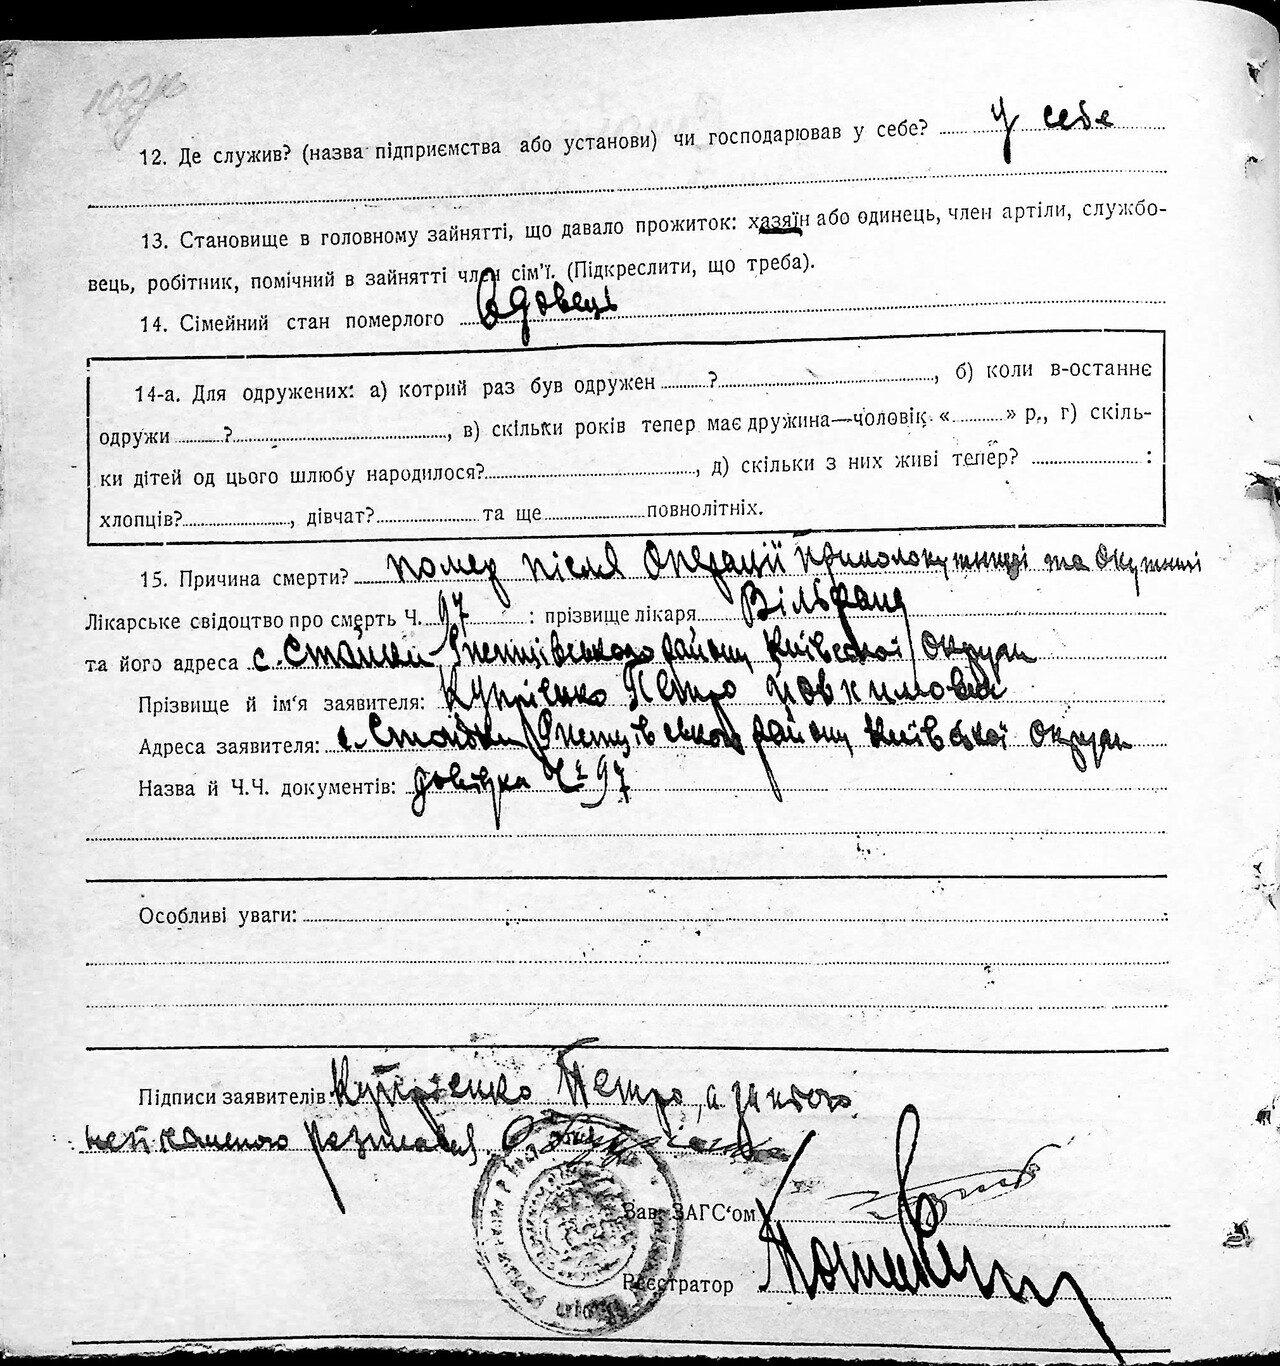 12. Де служив? (назва підприємства або установи) чи господарював у себе? у себе
13. Становище в головному зайнятті, що давало прожиток: хазяїн або одинець, член артіли, службо-
вець, робітник, помічний в зайнятті член сім'ї. (Підкреслити, що треба).
14. Сімейний стан померлого Вдовець
14-а. Для одружених: а) котрий раз був одружен ?, б) коли в-останнє
одружи ?, в) скільки років тепер має дружина—чоловік « » р., г) скіль-
ки дітей од цього шлюбу народилося?, д) скільки з них живі тепер? :
хлопців?, дівчат? та ще повнолітніх.
15. Причина смерти? помер після операції та
Лікарське свідоцтво про смерть Ч. 97 : прізвище лікаря
та його адреса с. Стайки району Київської Округи
Прізвище й ім'я заявителя: Купрієнко Петро Йовхимович
Адреса заявителя: с. Стайки району Київської Округи
Назва й Ч.Ч. документів: довідка Ч 97
Особливі уваги:
Підписи заявителів Купрієнко Петро, а за його
неписьменого розписався
Зав. ЗАГС'ом
Реєстратор